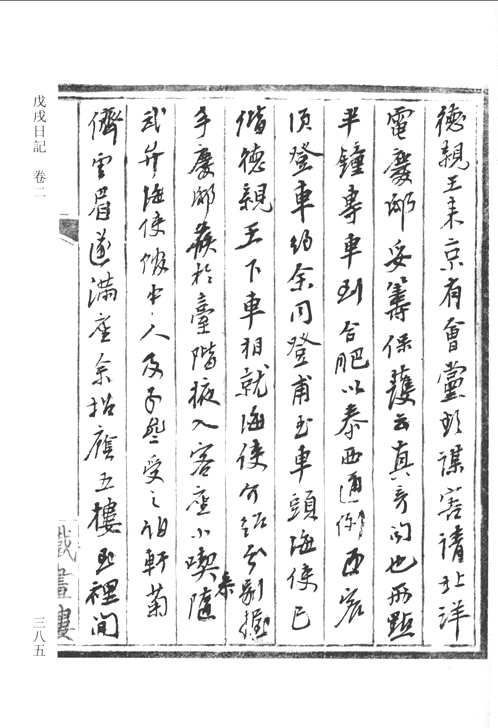 戊戌日記 卷二
德親王来京有會黨欲謀害請北洋
電慶邸妥籌保護云真奇聞也兩點
半鐘專車到合肥以泰西通例西官
須登車約余同登甫至車頭海使已
偕德親王下車相就海使介紹握
手慶邸俟於臺階掖入客座小喫来隨
武弁海使館中人及子受之伯軒菊
儕雲眉遂滿座余招廕五樓至裡間
畫樓
三八五